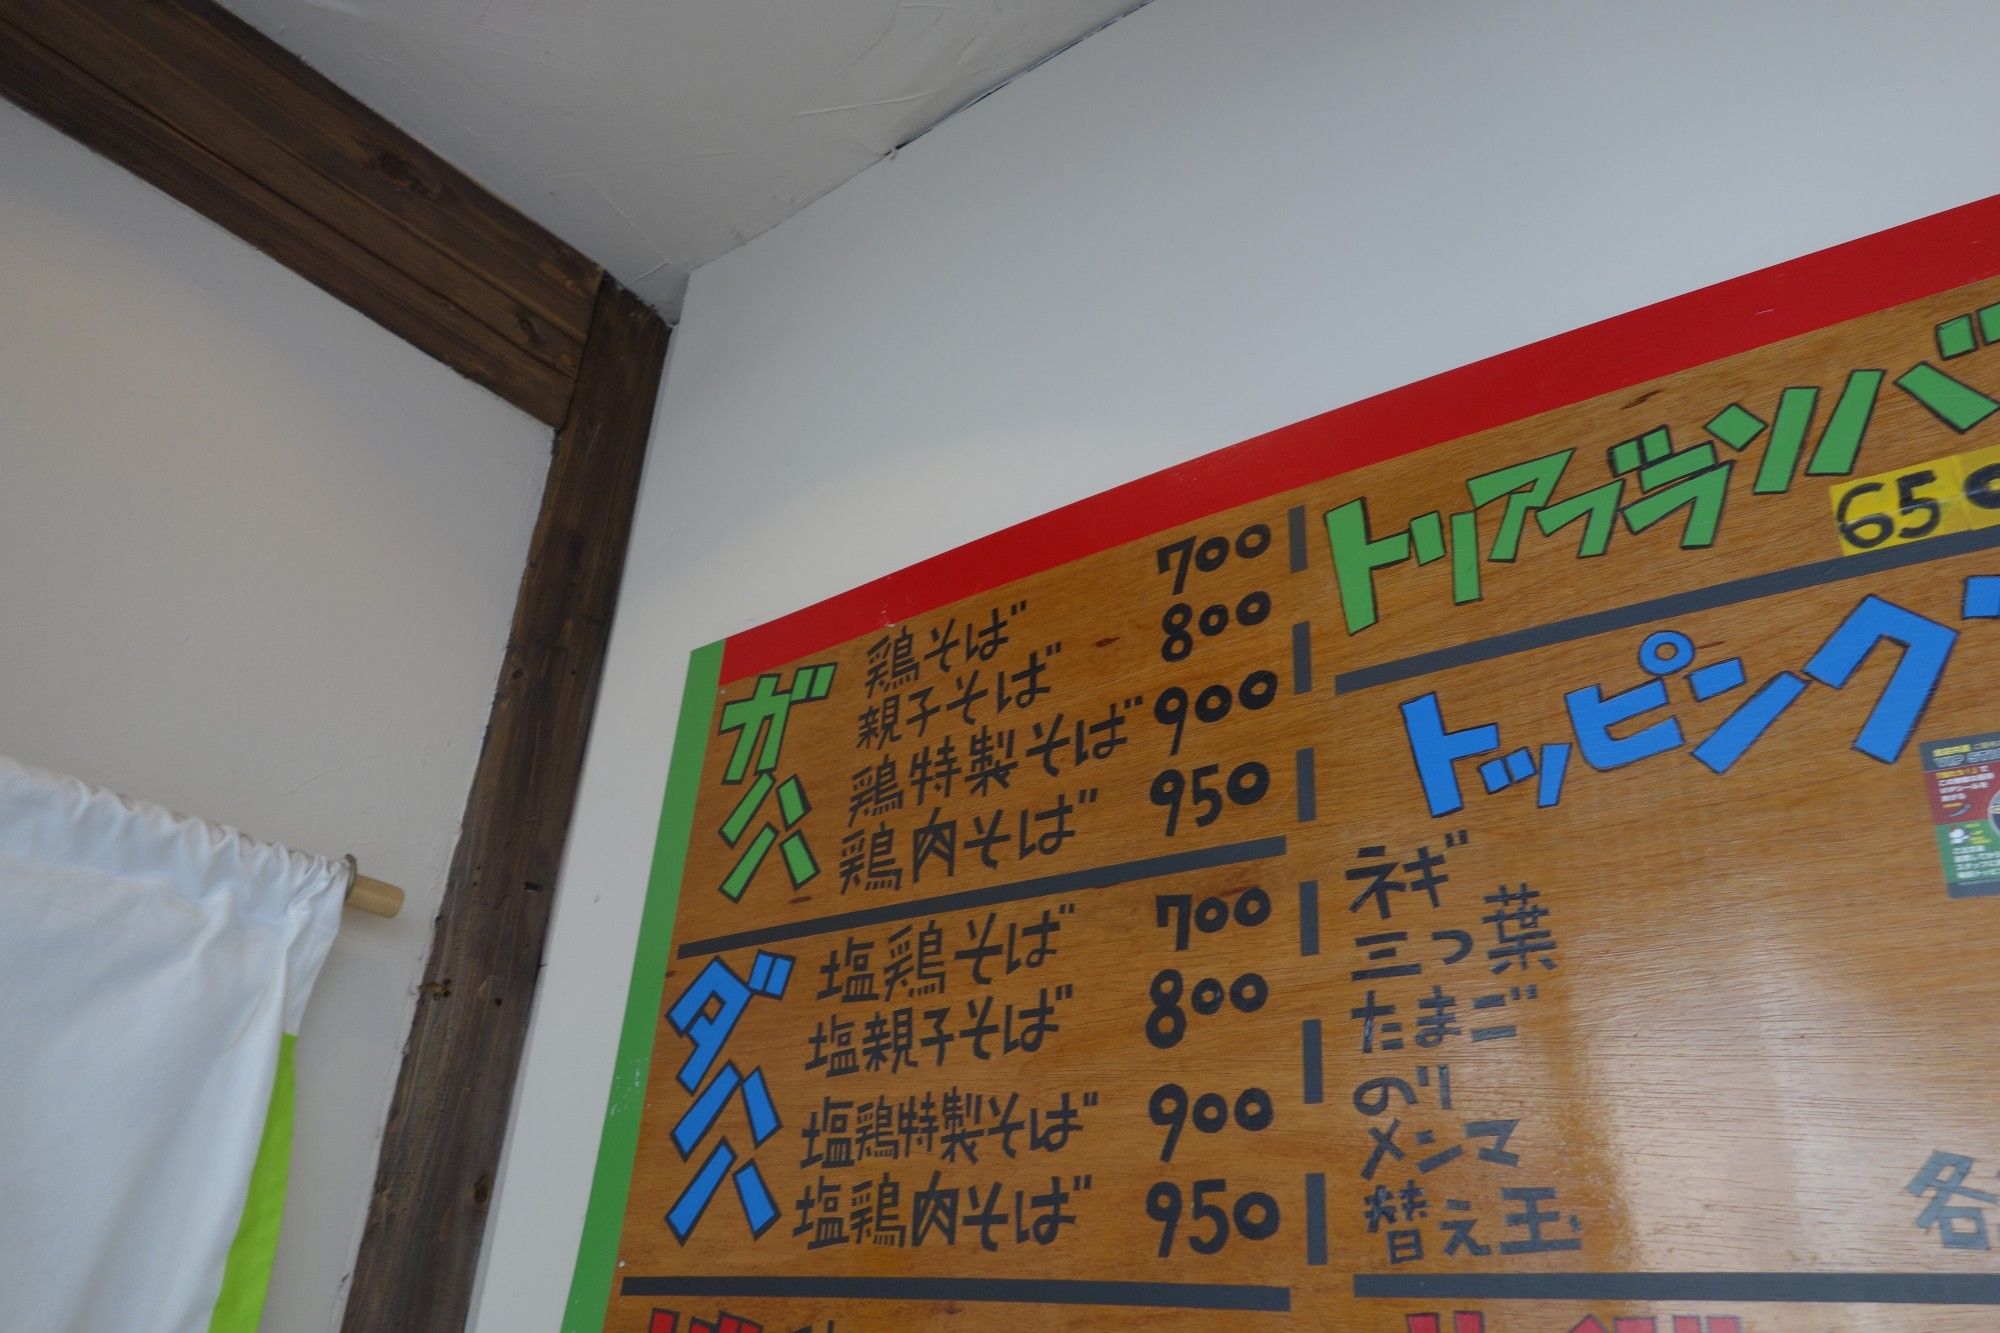 ガハ
鶏そば 700
親子そば 800
鶏特製そば 900
鶏肉そば 950
ダハ
塩鶏そば 700
塩親子そば 800
塩鶏特製そば 900
塩鶏肉そば 950
トリアブラソバ
650
トッピング
ネギ
三つ葉
たまご
のり
メンマ
替え玉
各